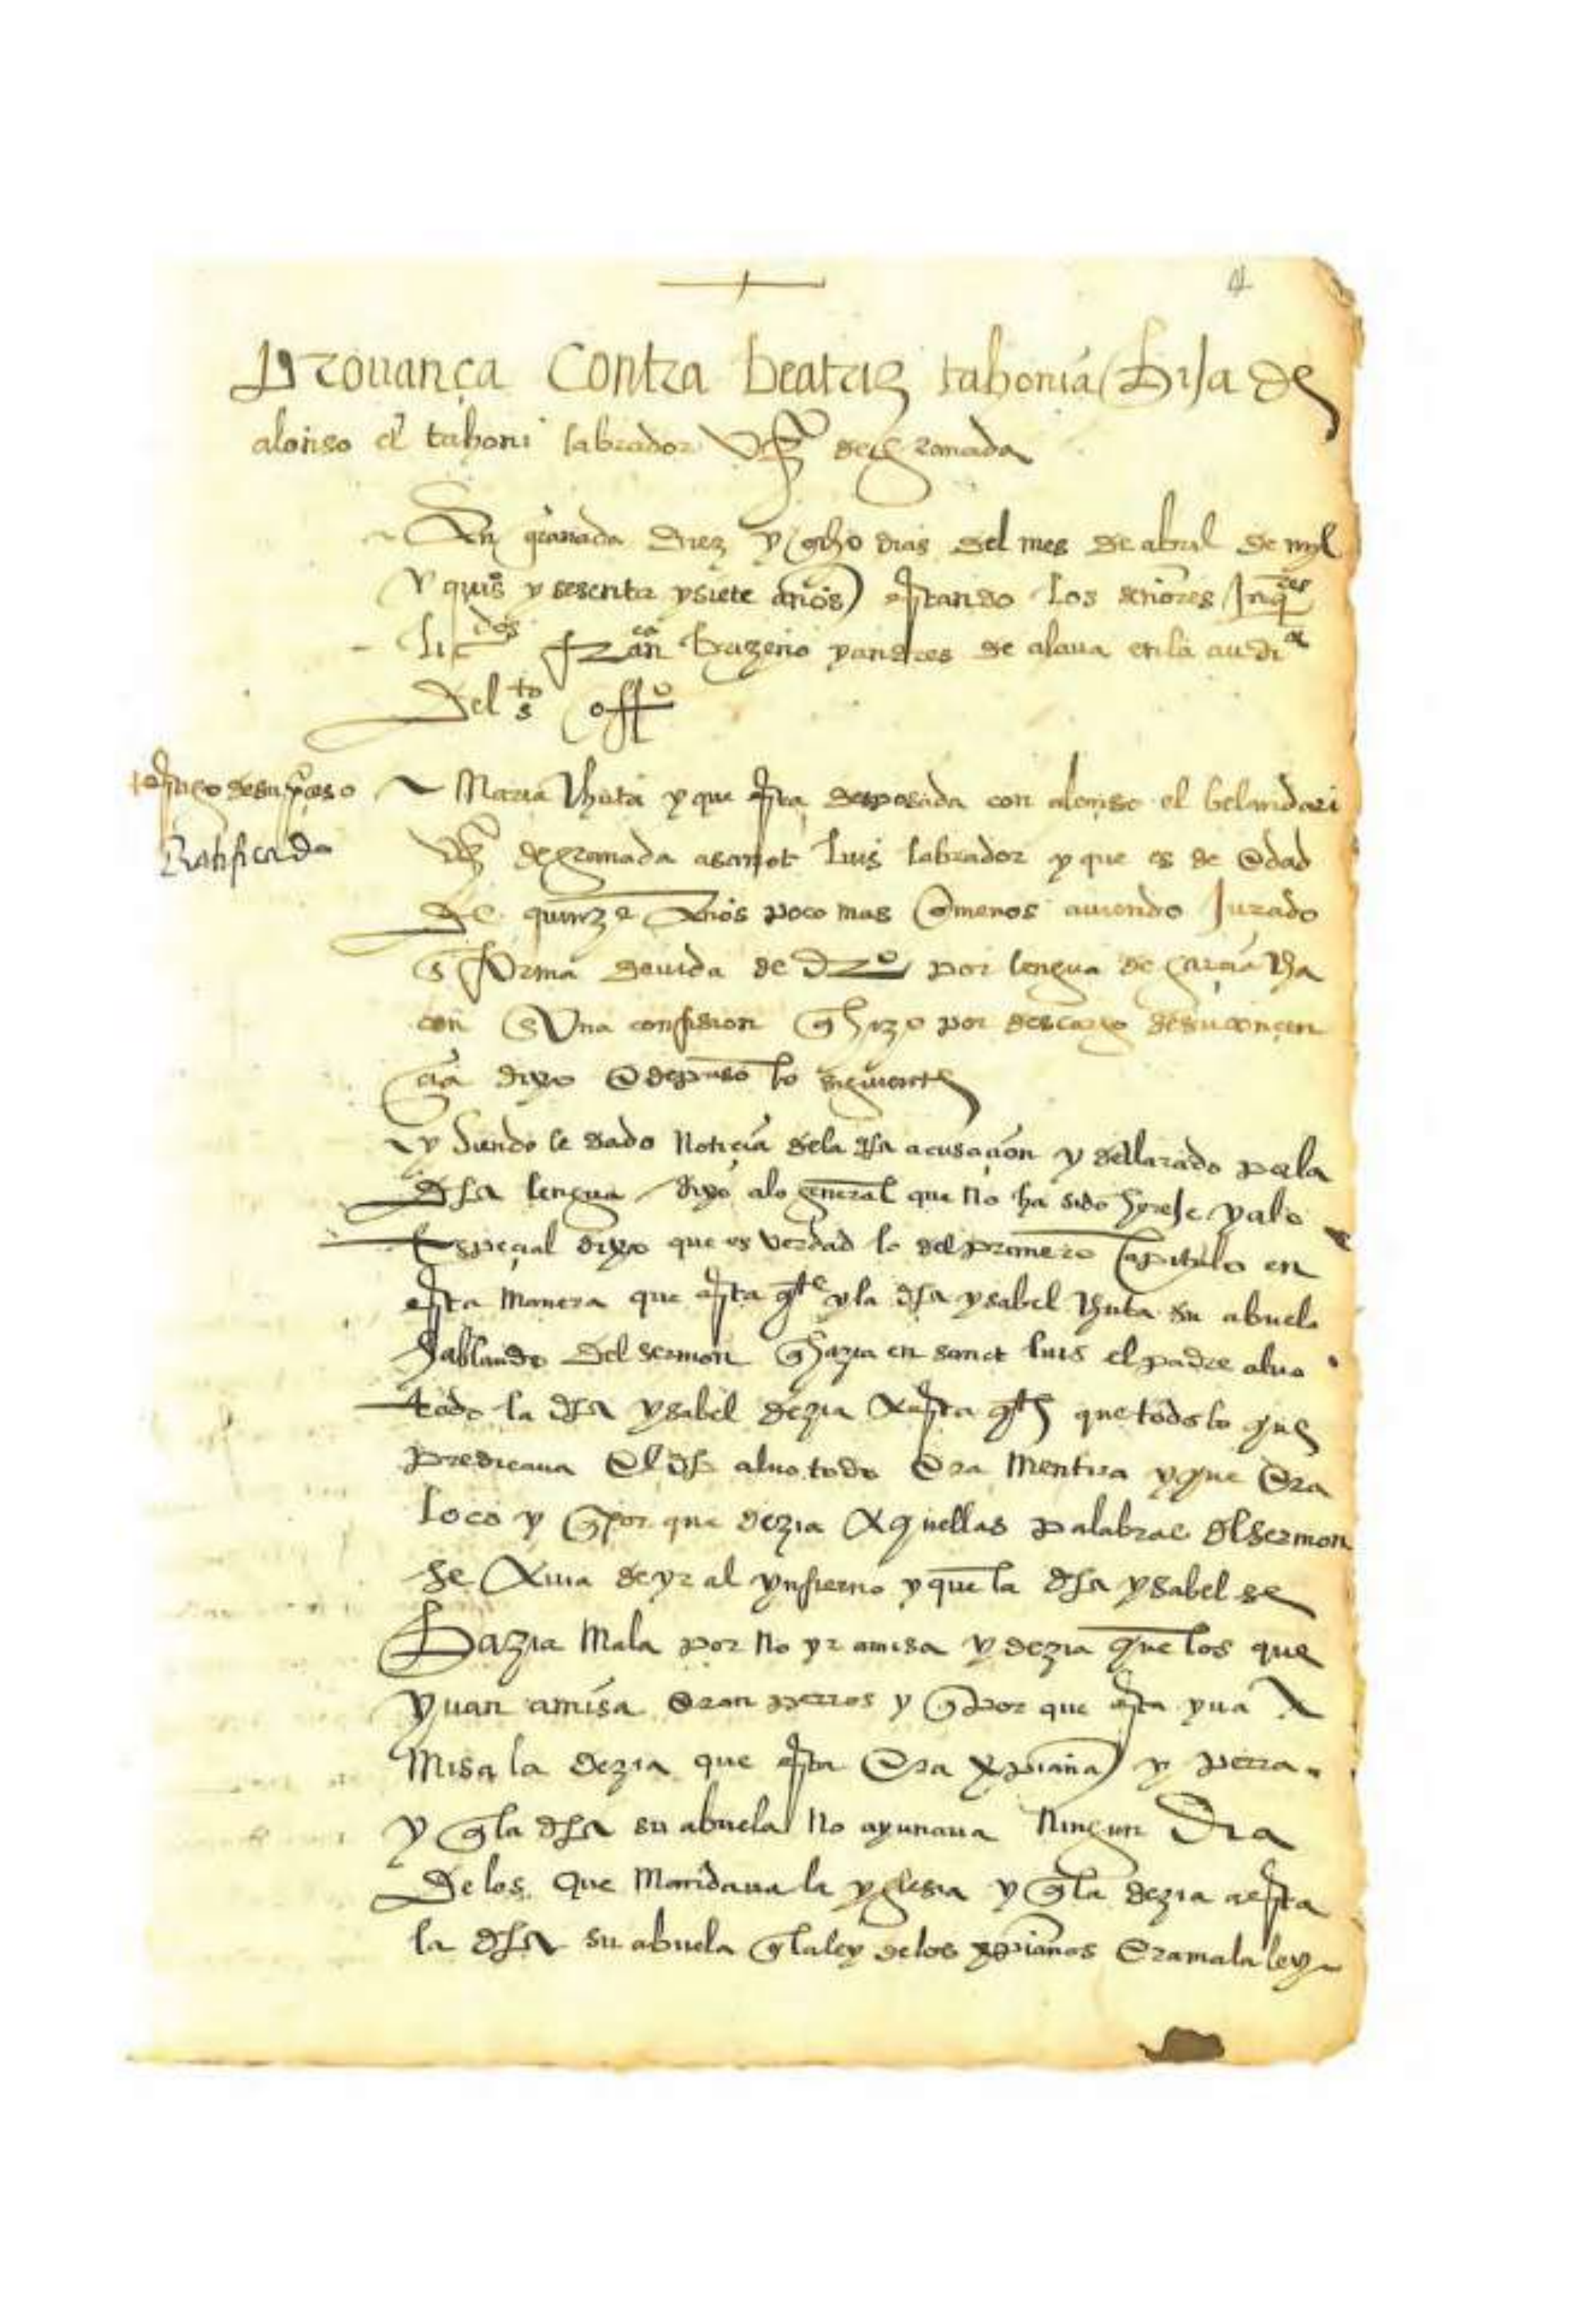 4
Provança Contra beatriz tahonia hija de
alonso el tahoni labrador vzº de granada
En granada diez y ocho dias del mes de abril de myl
y quiºs y sesenta y siete años estando los señores Inqres
licdos frcan bazeño y andres de alava en la audia
Del sto offº
testigo de su proceso
Ratificada
Maria y que esta desposada con alonso el belandari
vzª de granada a sanct luis labrador y que es de edad
de quinze años poco mas o menos aviendo Jurado
en forma devida de drº por lengua de garcia cha
con en una confision q hizo por descargo de su concien
cia dixo e depuso lo siguiente
y siendole dado noticia de la dha acusacion y declarado por la
dha lengua dixo a lo general que no ha sido hereje y a lo
Especial dixo que es verdad lo del primero capitulo en
esta manera que esta qte y la dha ysabel su abuela
hablando del sermon q hazia en sanct luis el padre alvo
todo la dha ysabel dezia a esta qte que todo lo que
predicava el dho alvotodo era mentira y que era
loco y q por que dezia aquellas palabras del sermon
se avia de yr al ynfierno y que la dha ysabel se
hazia mala por no yr a misa y dezia que los que
yvan a misa eran perros y q por que esta yva a
misa la dezia que esta era xpiana y perra
y q la dha su abuela no ayunava ningun dia
de los que mandava la yglesia y q la dezia a esta
la dha su abuela q la ley de los xpianos era mala ley